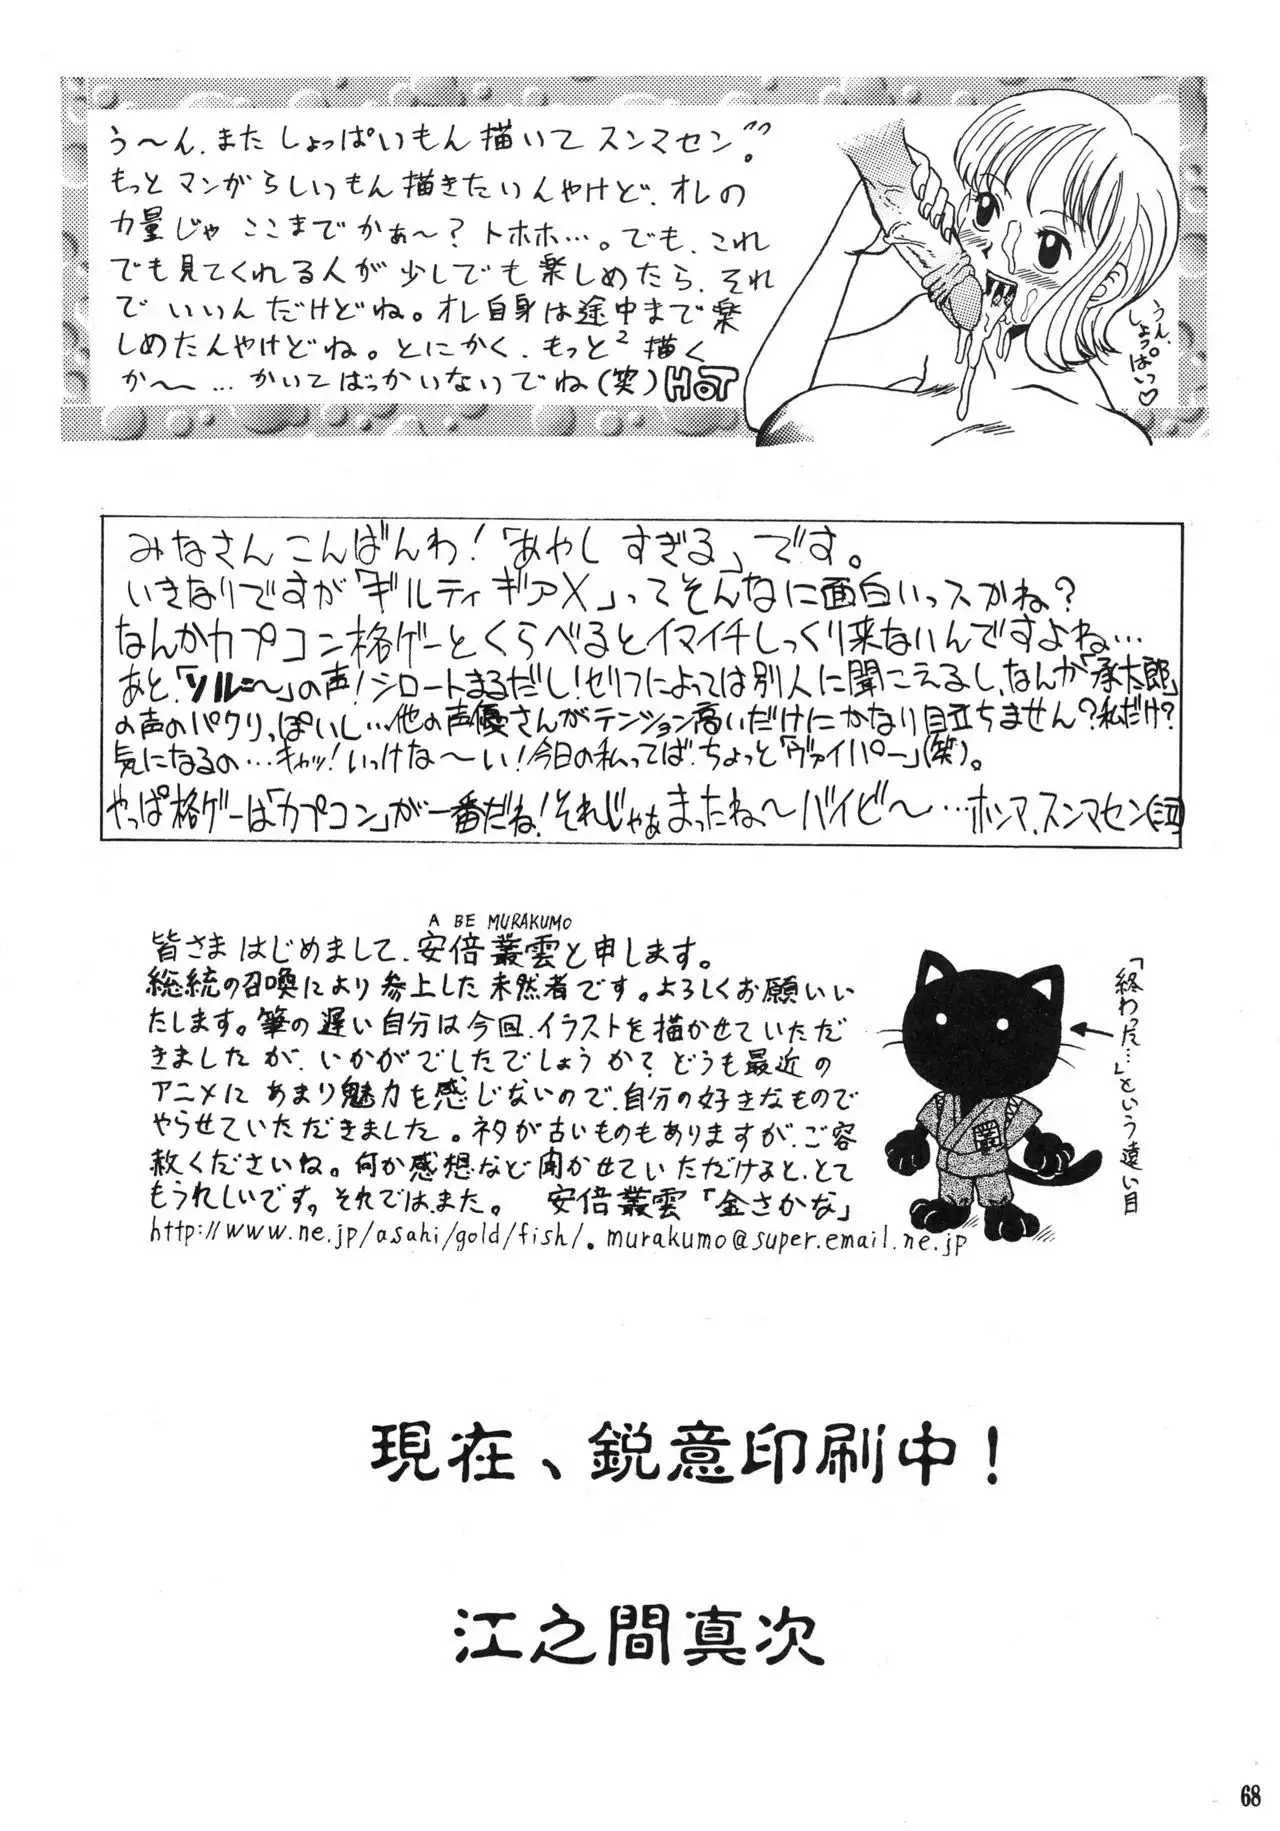 う〜ん、またしょっぱいもん描いてスンマセン!!
もっとマンガらしいもん描きたいんやけど、オレの
力量じゃここまでかぁ〜？トホホ…。でも、これ
でも見てくれる人が少しでも楽しめたら、それ
でいいんだけどね。オレ自身は途中まで楽
しめたんやけどね。とにかく、もっと²描く
か〜…かいてばっかいないでね(笑) HOT
うん、
しょっぱいっ♡
みなさんこんばんわ！「あやしすぎる」です。
いきなりですが「ギルティギアX」ってそんなに面白いっスかね？
なんかカプコン格ゲーとくらべるとイマイチしっくり来ないんですよね…
あと、「ソル」の声！シロートまるだし！セリフによっては別人に聞こえるし、なんか「承太郎」
の声のパクリっぽいし…他の声優さんがテンション高いだけにかなり目立ちません？私だけ？
気になるの…キャッ！いっけな〜い！今日の私ってば、ちょっと「ヴァイパー」(笑)。
やっぱ格ゲーは「カプコン」が一番だね！それじゃぁまったね〜バイビ〜…ホンマ、スンマセン
A BE MURAKUMO
皆さまはじめまして、安倍叢雲と申します。
総統の召喚により参上した未然者です。よろしくお願いい
たします。筆の遅い自分は今回、イラストを描かせていただ
きましたが、いかがでしたでしょうか？どうも最近の
アニメにあまり魅力を感じないので、自分の好きなもので
やらせていただきました。ネタが古いものもありますが、ご容
赦くださいね。何か感想など聞かせていただけると、とて
もうれしいです。それでは、また。 安倍叢雲「金さかな」
http://www.ne.jp/asahi/gold/fish/. murakumo@super.email.ne.jp
「終わった…」という遠い目
現在、鋭意印刷中！
江之間真次
68